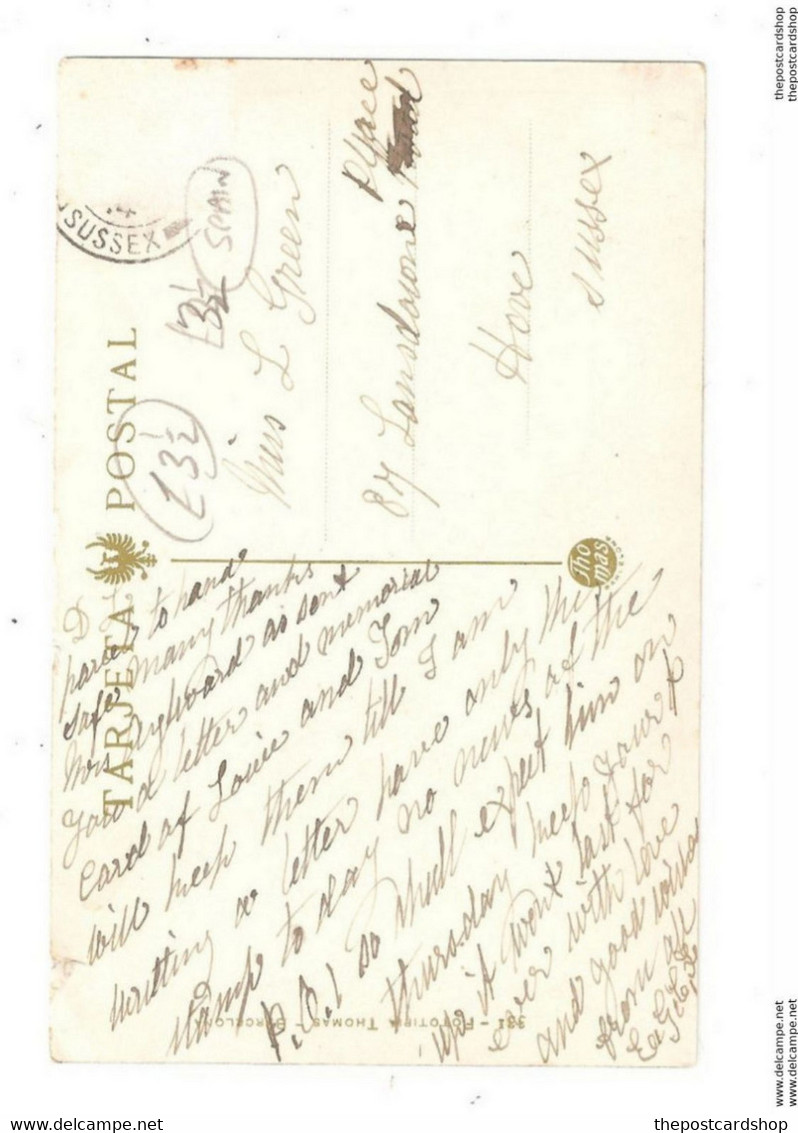 TARJETA POSTAL
SUSSEX
SPAIN
£3½
£3½
Miss L Green
87 Lansdowne Place
Hove
Sussex
D
parcel to hand
safe many thanks
Mrs as sent
you a letter and memorial
card of Louie and Tom
will keep them till I am
writting a letter have only the
stamp to day no news of the
P.O.1 so shall expect him on
thursday keep your
up it wont last for
ever with love x
and good wishes
from all
Thomas
BARCELONA
331 - FOTOTIPIA THOMAS - BARCELONA
thepostcardshop
thepostcardshop
www.delcampe.net
www.delcampe.net
www.delcampe.net
thepostcardshop